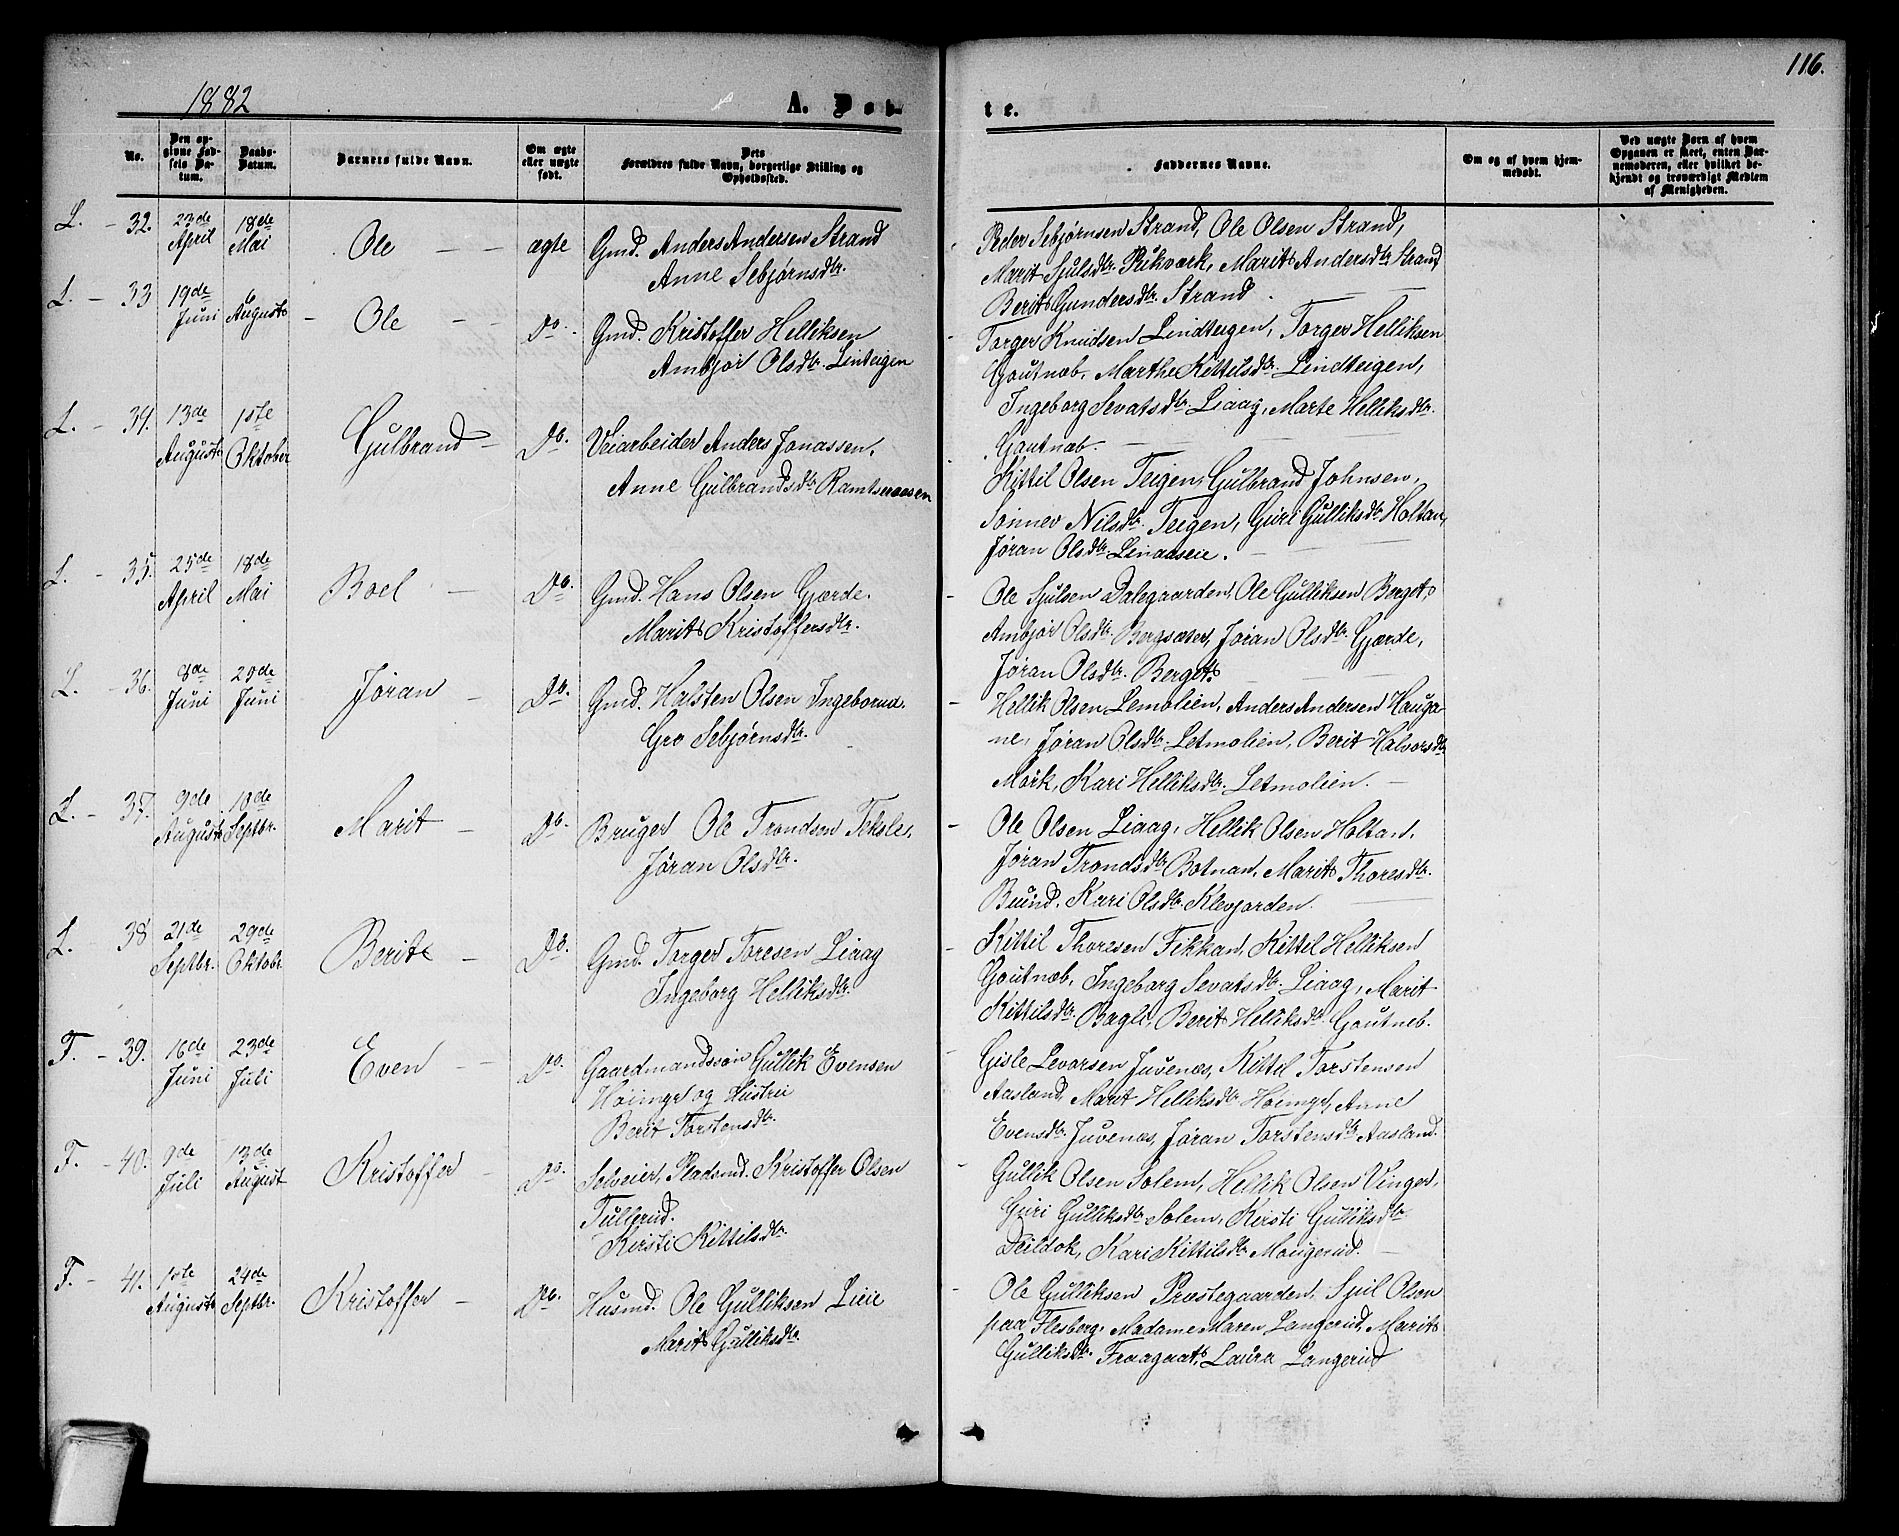 116.
1882
A. Døb-
te.
No.
Den opgivne Fødsels Datum.
Daabs-Datum.
Barnets fulde Navn.
Om ægte eller uægte født.
Dets Forældres fulde Navn, borgerlige Stilling og Opholdssted.
Faddernes Navne.
Om og af hvem hjemmedøbt.
Ved uægte Børn af hvem Opgaven er skeet, enten Barnemoderen, eller hvilket bekjendt og troværdigt Medlem af Menigheden.
L. - 32. 23de April 18de Mai Ole - - ægte Gmd. Anders Andersen Strand
Anne Sebjørnsdtr.
Peder Sebjørnsen Strand, Ole Olsen Strand,
Marit Sjulsdtr. Rikværk, Marit Andersdtr. Strand
Berit Gundersdtr. Strand.
L. - 33 19de Juni 6 August - Ole - - Do. Gmd. Kristoffer Helliksen
Ambjør Olsdtr. Linteigen
Torger Knudsen Lindteigen, Torger Helliksen
Goutnæb, Marthe Kittilsdtr. Lindteigen,
Ingeborg Sevatsdtr. Liaag, Marte Helliksdtr.
Goutnæb.
L. - 34. 13de August 1ste Oktober Gulbrand - Do. Veiarbeider Anders Jonassen,
Anne Gulbrandsdtr. Ramtsnaasen
Kittil Olsen Teigen, Gulbrand Johnsen,
Sønnev Nilsdtr. Teigen, Guri Gulliksdtr. Holtan,
Jøran Olsdtr. Linaaseie.
L. - 35. 25de April 18de Mai Boel - Do. Gmd. Hans Olsen Gjærde.
Marit Kristoffersdtr.
Ole Sjulsen Dalegaarden, Ole Gulliksen Berget,
Ambjør Olsdtr. Bergsæter, Jøran Olsdtr. Gjærde,
Jøran Olsdtr. Berget
L. - 36. 8de Juni 29de Juni Jøran - Do. Gmd. Halsten Olsen Ingeborrud.
Gro Sebjørnsdtr.
Hellik Olsen Lemolien, Anders Andersen Hauga-
ne, Jøran Olsdtr. Letmolien, Berit Halvorsdtr.
Mørk, Kari Helliksdtr. Letmolien.
L. - 37. 9de August 10de Septbr. Marit - Do. Bruger Ole Trondsen Teksle,
Jøran Olsdtr.
Ole Olsen Liaag, Hellik Olsen Holtan,
Jøran Trondsdtr. Botnan, Marit Thoresdtr.
Buind. Kari Olsdtr. Klevjorden.
L. - 38 21de Septbr. 29de Oktobr. Berit - Do. Gmd. Torger Toresen Liaag
Ingeborg Helliksdtr.
Kittil Thoresen Fekkan, Kittil Helliksen
Goutnæb, Ingeborg Sevatsdtr. Liaag, Marit
Kittilsdtr. Bagle, Berit Helliksdtr. Goutneb.
F. - 39. 16de Juni 23de Juli Even - Do. Gaardmandssøn Gullik Evensen
Høimyr og Hustru
Berit Torstensdtr.
Gisle Levorsen Juvenæs, Kittil Torstensen
Aasland, Marit Helliksdtr. Høimyr, Anne
Evensdtr. Juvenæs, Jøran Torstensdtr. Aasland.
F. - 40. 9de Juli 13de August Kristoffer - Do. Selveier, Pladsmd. Kristoffer Olsen
Tullerud.
Kirsti Kittilsdtr.
Gullik Olsen Solem, Hellik Olsen Vinger,
Guri Gulliksdtr. Solem, Kirsti Gulliksdtr.
Deildok, Kari Kittilsdtr. Maugerud.
F. - 41. 1ste August 24de Septbr. Kristoffer - Do. Husmd. Ole Gulliksen Lieie
Marit Gulliksdtr.
Ole Gulliksen Præstegaarden, Sjul Olsen
paa Flesberg, Madame Maren Langerud, Marit
Gulliksdtr. Fraagaat, Laura Langerud